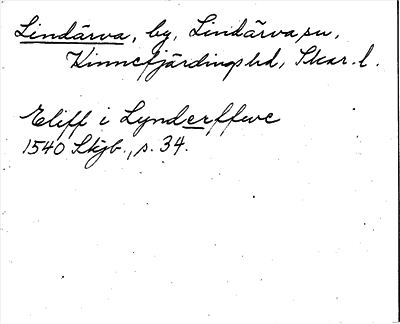 Lindärva, by, Lindärva sn,
Kinnefjärdings hd, Skar. l.
Eliff i Lynderffwe
1540 Skjb., s. 34.